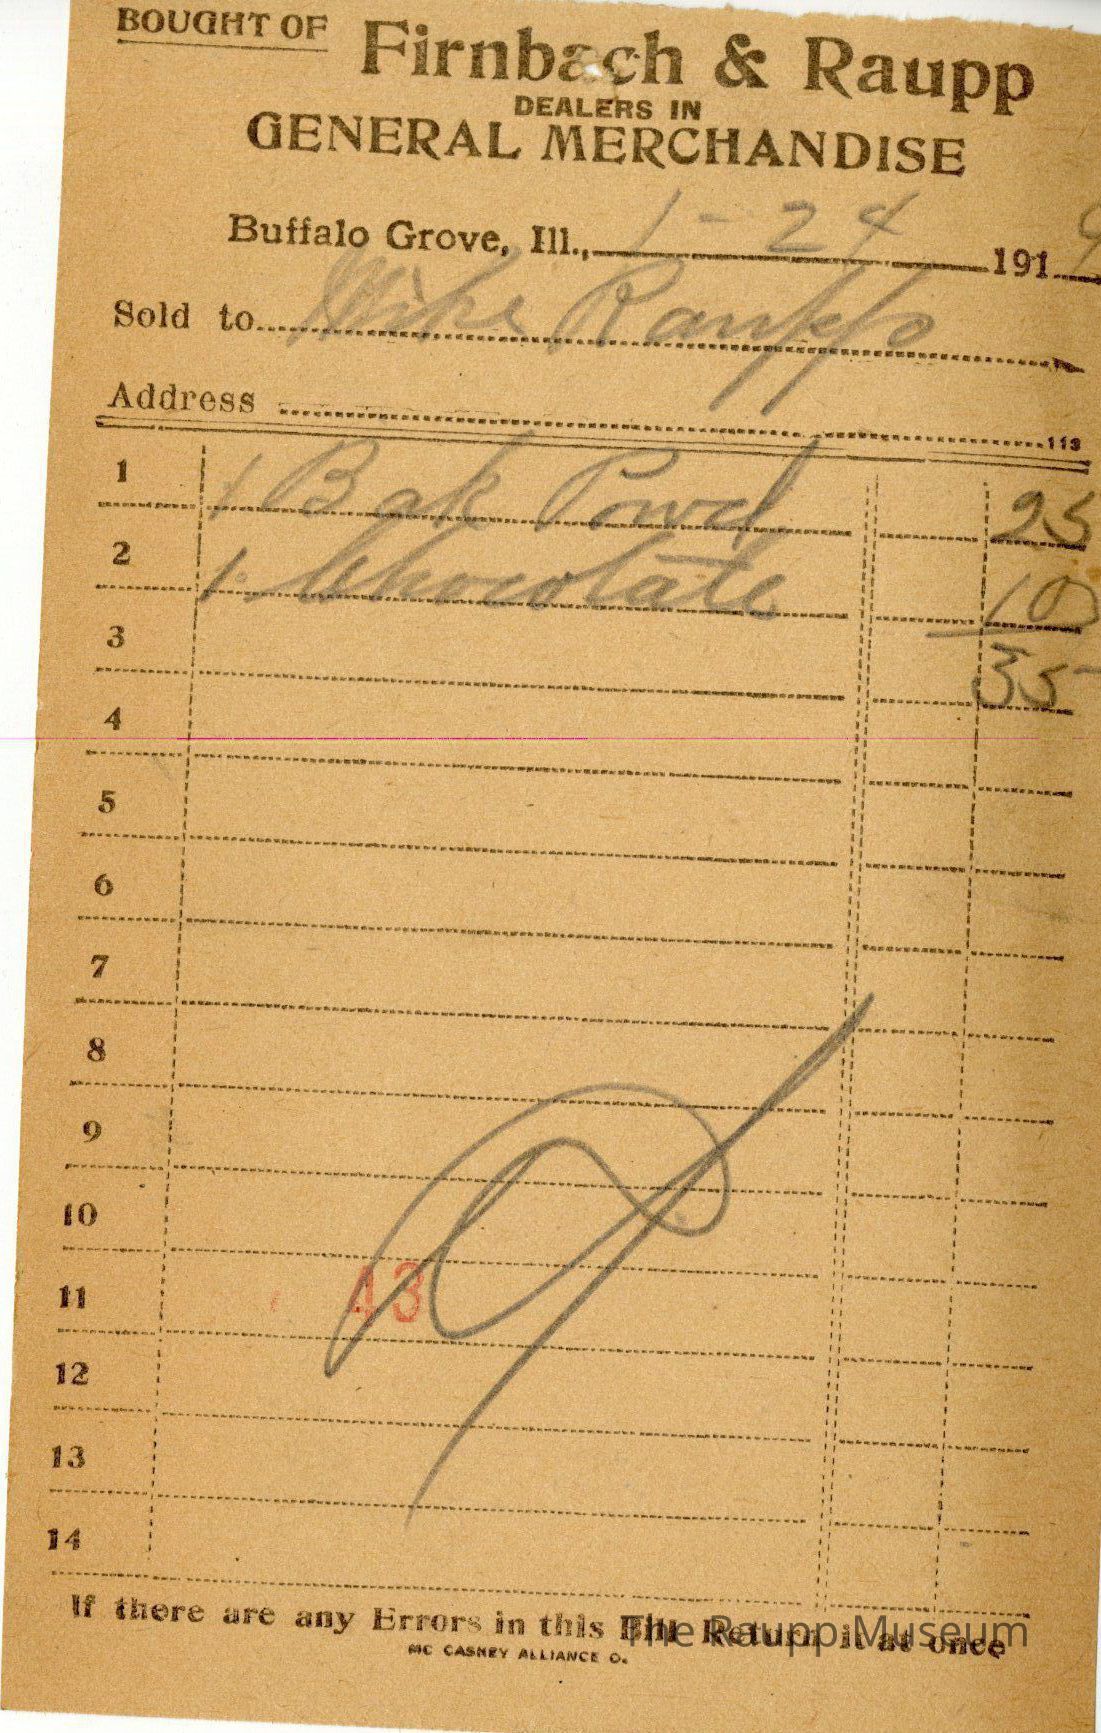 BOUGHT OF Firnbach & Raupp
DEALERS IN
GENERAL MERCHANDISE
Buffalo Grove, Ill., 1-24 1919
Sold to Mike Raupp
Address
113
1 1 Bak Powd 25
2 1 Chocolate 10
3 35
4
5
6
7
8
9
10
11 43
12
13
14
If there are any Errors in this Bill Return it at once
The Raupp Museum
MC CASKEY ALLIANCE O.